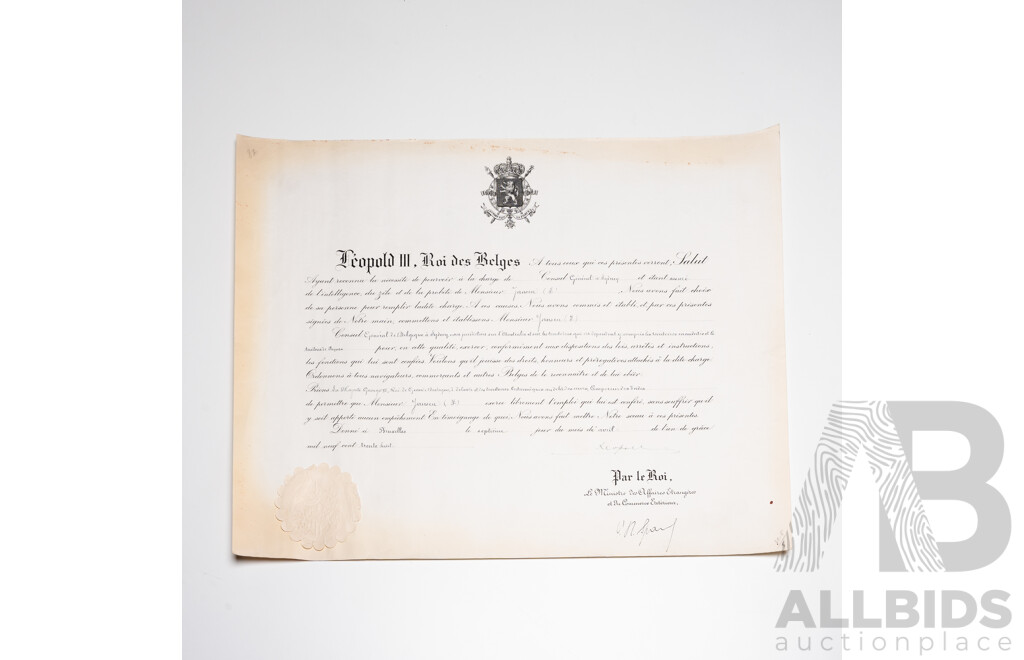 Léopold III, Roi des Belges A tous ceux qui ces présentes verront, Salut
Ayant reconnu la nécessité de pourvoir à la charge de Consul Général à Sydney et étant
de l'intelligence, du zèle et de la probité de Monsieur Nous avons fait choix
de sa personne pour remplir ladite charge. A ces causes Nous avons commis et établi, et par ces présentes
signées de Notre main, commettons et établissons Monsieur
Consul Général de Belgique à Sydney
pour, en cette qualité, exercer, conformément aux dispositions des lois, arrêtés et instructions,
les fonctions qui lui sont confiées. Voulons qu'il jouisse des droits, honneurs et prérogatives attachés à la dite charge.
Ordonnons à tous navigateurs, commerçants et autres Belges de le reconnaître et de lui obéir.
Prions Sa Majesté George VI, Roi de Grande Bretagne, d'Irlande et des territoires britanniques au delà des mers, Empereur des Indes
de permettre que Monsieur exerce librement l'emploi qui lui est conféré, sans souffrir qu'il
y soit apporté aucun empêchement. En témoignage de quoi, Nous avons fait mettre Notre sceau à ces présentes.
Donné à Bruxelles le septième jour du mois de de l'an de grâce
mil neuf cent trente huit.
Par le Roi,
Le Ministre des Affaires Etrangères
et du Commerce Extérieur,
AB
ALLBIDS
auctionplace